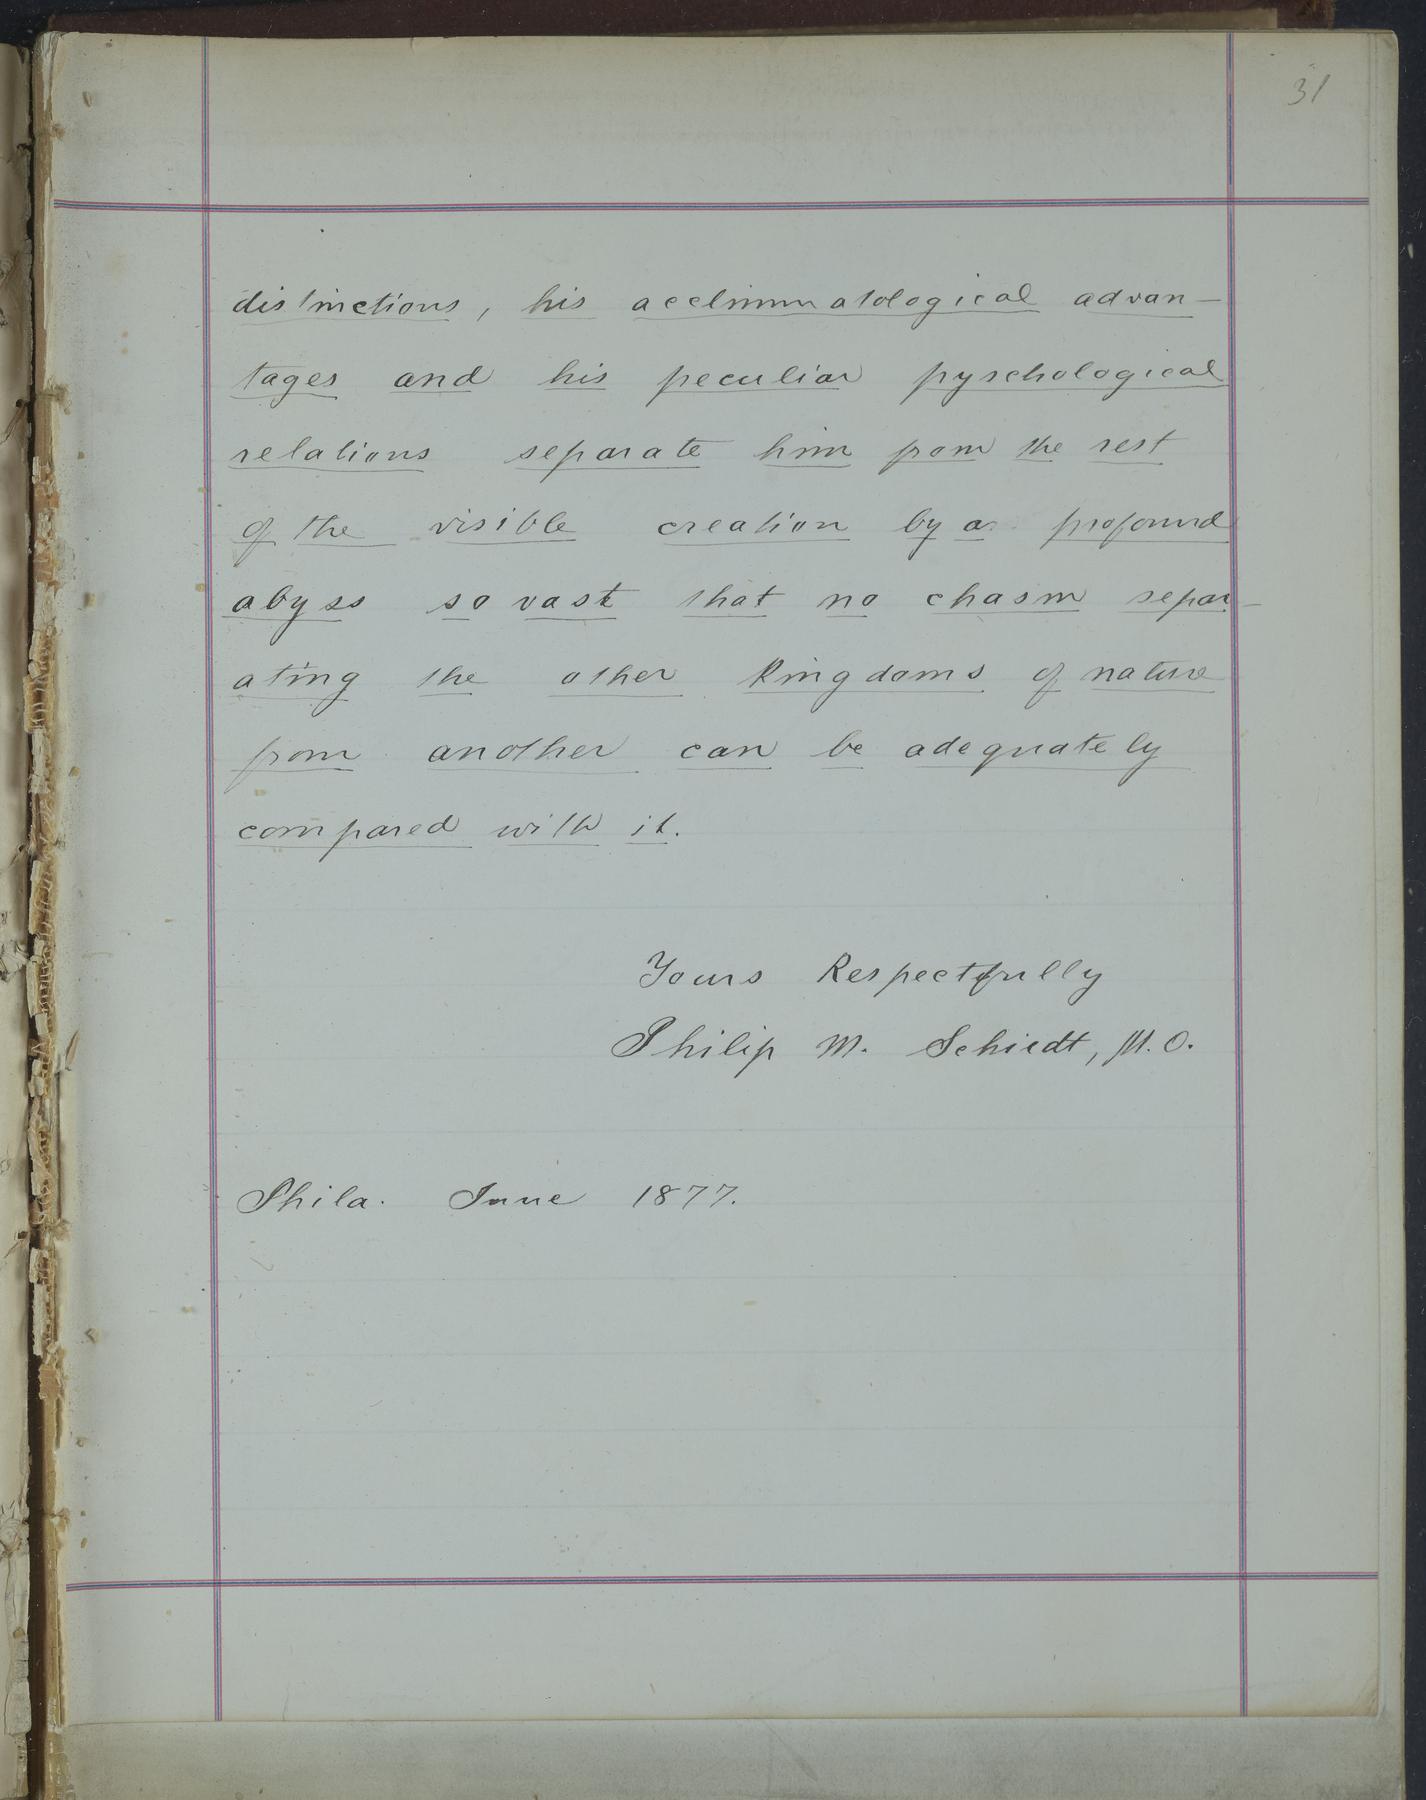 31
distinctions, his acclimmatological advan-
tages and his peculiar pyschological
relations separate him from the rest
of the visible creation by a profound
abyss so vast that no chasm separ-
ating the other kingdoms of nature
from another can be adequately
compared with it.
Yours Respectfully
Philip M. Schiedt, M.D.
Phila. June 1877.